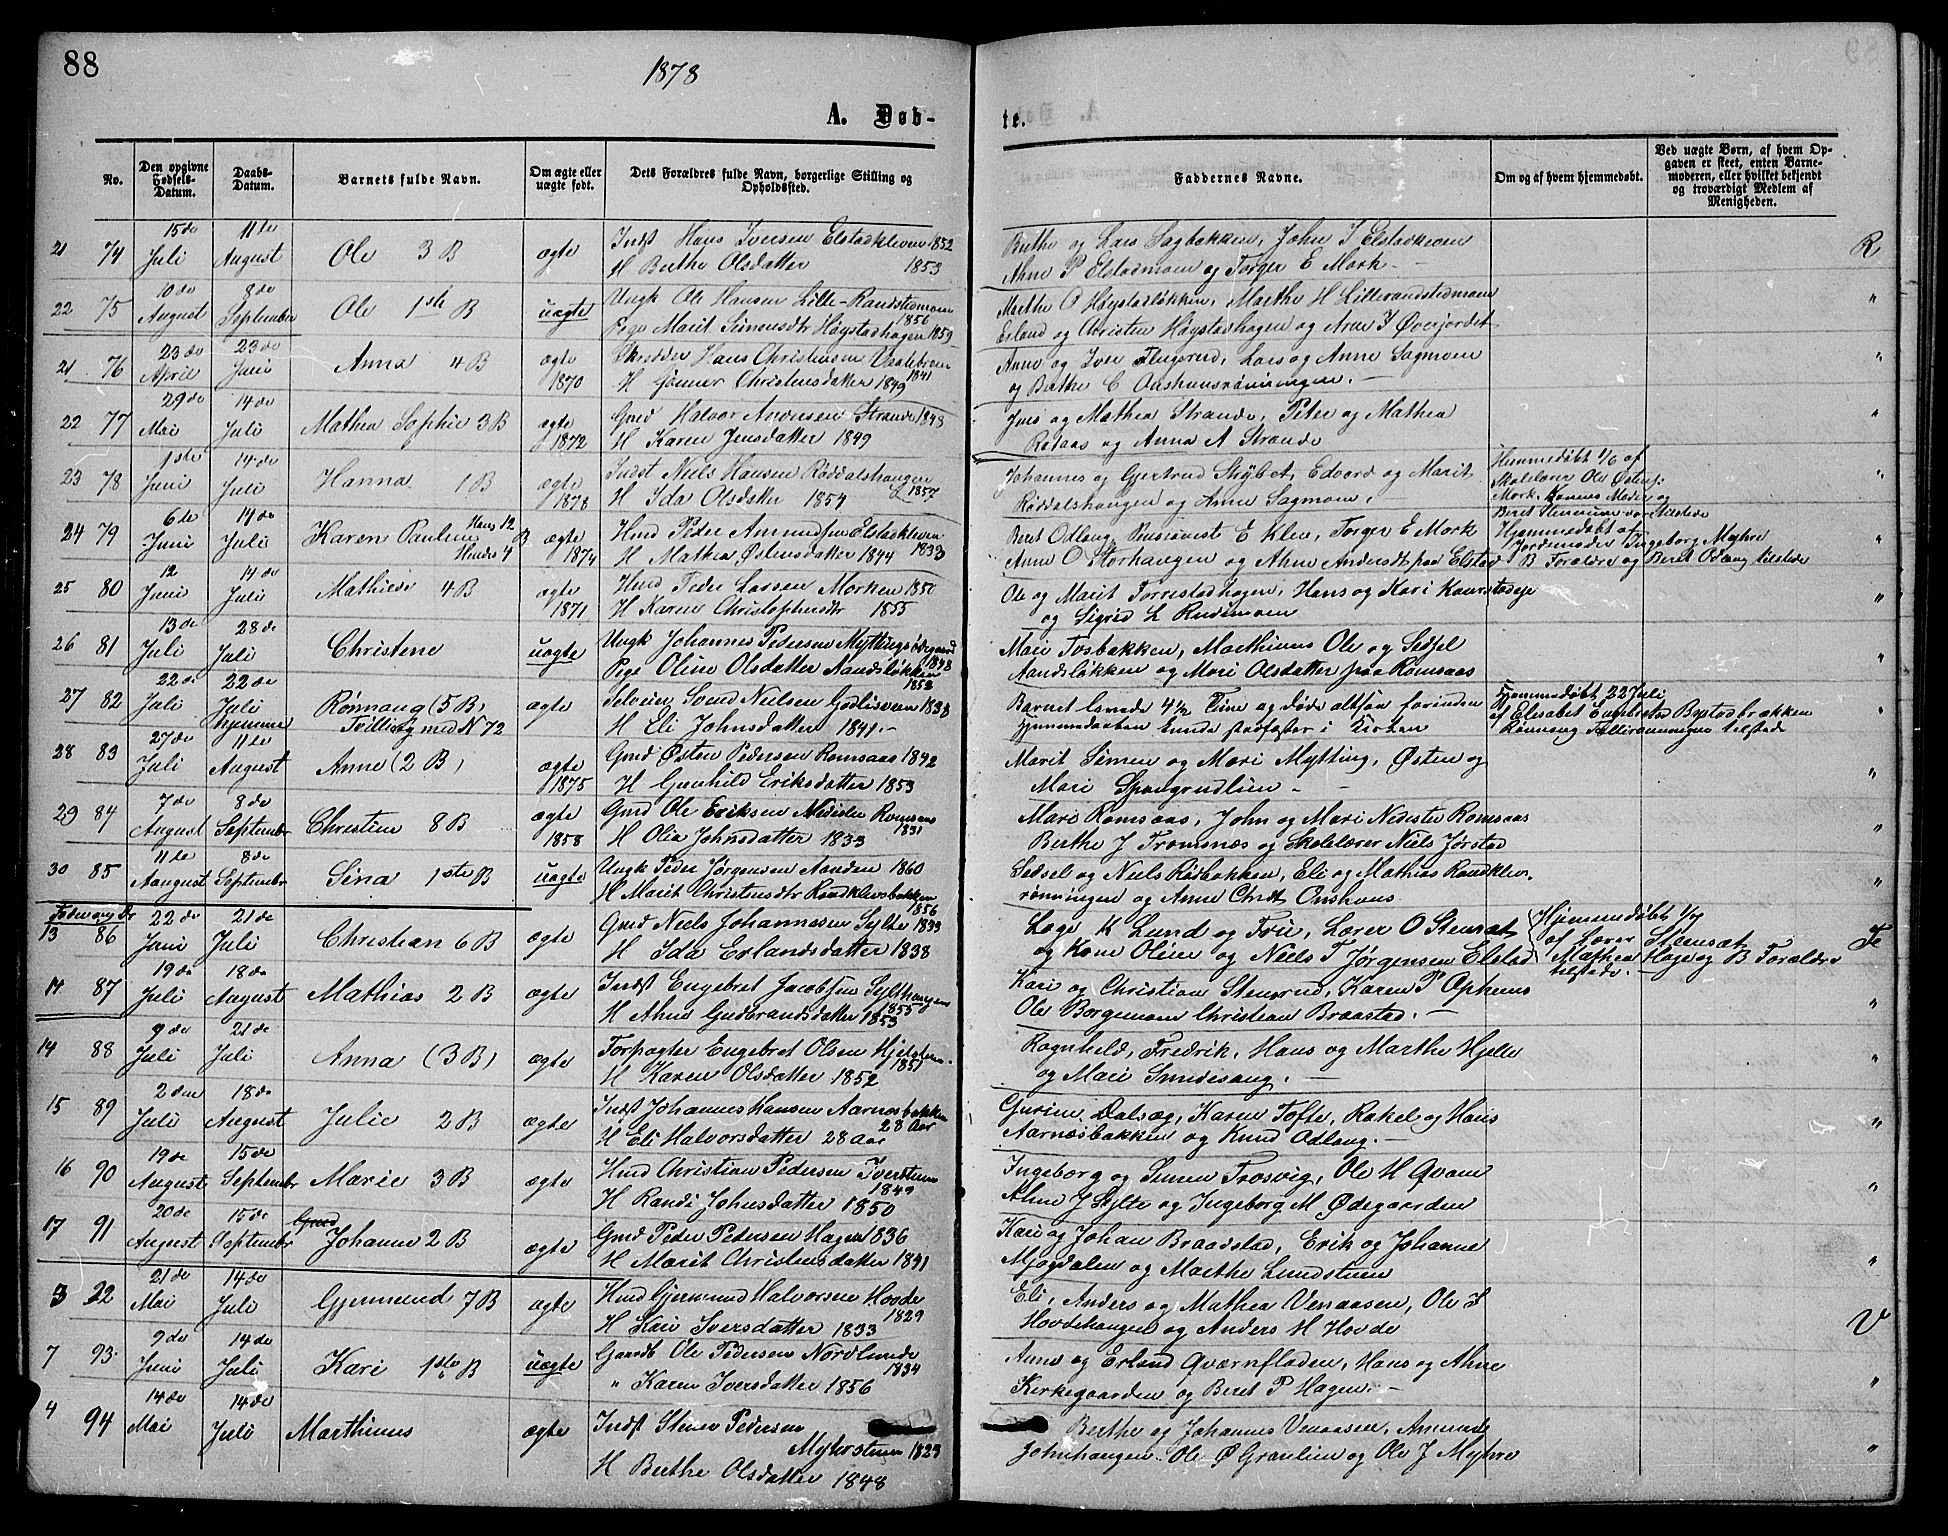 88
1878
A. Døb-
te.
No.
Den opgivne Fødsels-Datum.
Daabs-Datum.
Barnets fulde Navn.
Om ægte eller uægte født.
Dets Forældres fulde Navn, borgerlige Stilling og Opholdssted.
Faddernes Navne.
Om og af hvem hjemmedøbt.
Ved uægte Børn, af hvem Opgaven er skeet, enten Barnemoderen, eller hvilket bekjendt og troværdigt Medlem af Menigheden.
21 74 15de Juli 11te August Ole 3 B ægte Indst Hans Iversen Elstadkleven 1852
H Berthe Olsdatter 1853
Berthe og Lars Sagbakken, John I Elstadkleven
Ahne P Elstadmoen og Torger E Mork - R
22 75 10de August 8de September Ole 1ste B uægte Ungk Ole Hansen Lille-Randstedmoen 1856
Pige Marit Simensdtr Høystadhagen 1859
Marthe O Høystadløkken, Marthe H Lillerandstedmoen
Erland og Christen Høystadhagen og Arne I Øverjordet "
21 76 23de April 23de Juni Anna 4 B ægte 1870 Skrædder Hans Christensen Vaalebroen 1841
H Gønner Christensdatter 1849
Anne og Iver Flugsrud, Lars og Anne Sagmoen
og Berthe C Onshuusrønningen. - "
22 77 29de Mai 14de Juli Mathea Sophie 3 B ægte 1872 Gmd Halvor Andersen Strande 1848
H Karen Jensdatter 1849
Jens og Mathea Strande, Peter og Mathea
Rolaas og Anna A Strande "
23 78 1ste Juni 14de Juli Hanna 1 B ægte 1878 Indst Niels Hansen Røddalshaugen 1857
H Ida Olsdatter 1854
Johannes og Gjertrud Skybet, Edvard og Marit
Røddalshaugen og Anne Sagmoen. -
Hjemmedøbt 1/6 af
Skolelærer Ole Østensj
Mork. Konens Moder og
Beret Stensrum var tilstede "
24 79 6te Juni 14de Juli Karen Pauline Hans 12 B Hendes 4 ægte 1874 Hmd Peder Amundsen Elstadkleven 1833
H Mathea Østensdatter 1844
Beret Odlang, Pensionist E Klev, Torger E Mork
Anne O Storhaugen og Ahne Andersdt paa Elstad
Hjemmedøbt af
Jordemoder Ingeborg Myhre
B Forældre og Beret Odlang tilstede "
25 80 12 Juni 14de Juli Mathilde 4 B ægte 1871 Hmd Peder Larsen Morken 1850
H Karen Christophersdtr 1855
Ole og Marit Forrestadhagen, Hans og Kari Kaurstadeje
og Sigrid L Rudsmoen "
26 81 13de Juli 28de Juli Christene uægte Ungk Johannes Pedersen Myttingsødegaard 1848
Pige Oline Olsdatter Aandsløkken 1852
Mari Tosbakken, Mathinus Ole og Sidsel
Aandsløkken og Mari Olsdatter paa Romsaas "
27 82 22de Juli 22de Juli hjemme Rønnaug (5 B) Tvilling med N 72 ægte Selveier Svend Nielsen Godlisveen 1838
H Eli Johnsdatter 1841. -
Barnet levede 4½ Time og døde altsaa forinden
Hjemmedaaben kunde stadfæstes i Kirken
Hjemmedøbt 22 Juli
af Elisabet Engbretsd Bystadbrækken
Rønnaug Tollivrønningen tilstede "
28 83 27de Juli 11te August Anne (2 B) ægte 1875 Gmd Østen Pedersen Romsaas 1842
H Gunhild Eriksdatter 1853
Marit Simen og Mari Mytting, Østen og
Mari Spangrudlien - "
29 84 7de August 8de September Christine 8 B ægte 1858 Gmd Ole Eriksen Nedistu Romsaas 1831
H Olia Johnsdatter 1833
Mari Romsaas, John og Mari Nedistu Romsaas
Berthe J Tromsnæs og Skolelærer Niels Jørstad "
30 85 11te August 8de September Sina 1ste B uægte Ungk Peder Jørgensen Aanden 1860
H Marit Christensdtr Randklevsbakken 1856
Sidsel og Niels Rødbakken, Eli og Mathias Randklev-
rønningen og Anne Chrdt Onshuus "
13 86 22de Juni 21de Juli Christian 6 B ægte Gmd Niels Johannesen Sylte 1833
H Ida Erlandsdatter 1838
Læge K Lund og Frue, Lærer O Stensæt
og Kone Oline og Niels T Jørgensen Elstad
Hjemmedøbt 1/7
af Lærer Stensæt
Mathea Hage og B Forældre
tilstede. - Fe
14 87 19de Juli 18de August Mathias 2 B ægte Indst Engebret Jacobsen Sylthaugen 1855
H Ahne Gudbrandsdatter 1853
Kari og Christian Stensrud, Karen P Opheims
Ole Borgemoen Christian Braastad. - "
14 88 9de Juli 21de Juli Anna (3 B) ægte Forpagter Engebret Olsen Hjelstuen 1851
H Karen Olsdatter 1852
Ragnhild, Fredrik, Hans og Marthe Hjelle
og Mari Sundesang. - "
15 89 2den Juli 18de August Julie 2 B ægte Indst Johannes Hansen Aarnæsbakken 28 Aar
H Eli Halvorsdatter 28 Aar
Gurine Dalsæg, Karen Tofte, Rakel og Hans
Aarnæsbakken og Knud Odlang. - "
16 90 19de August 15de September Marie 3 B ægte Hmd Christian Pedersen Iverstuen 1849
H Randi Johnsdatter 1850
Ingeborg og Simen Trosvig, Ole H Qvam
Ahne J Sylte og Ingeborg M Ødegaarden "
17 91 20de August 15de September Johanne 2 B ægte Gmd Peder Pedersen Hagen 1836
H Marit Christensdatter 1841
Kari og Johan Braadstad, Erik og Johanne
Mjogdalen og Marthe Lundstuen "
3 22 21de Mai 14de Juli Gjermund 7 B ægte Hmd Gjermund Halvorsen Hovde 1829
H Kari Iversdatter 1833
Eli, Anders og Mathea Venaasen, Ole I
Hovdehaugen og Anders H Hovde V
7 93 9de Juni 14de Juli Kari 1ste B uægte Gaardb Ole Pedersen Nordlunde 1834
" Karen Iversdatter 1856
Anne og Erland Qværnfladen, Hans og Ahne
Kirkegaarden og Beret P Hagen. - "
4 94 14de Mai 14de Juli Marthinus ægte Indst Stener Pedersen
Myhrstuen 1823
H Berthe Olsdatter 1848
Berthe og Johannes Venaasen, Amunde
Johnhaugen Ole Ø Granlien og Ole J Myhre "